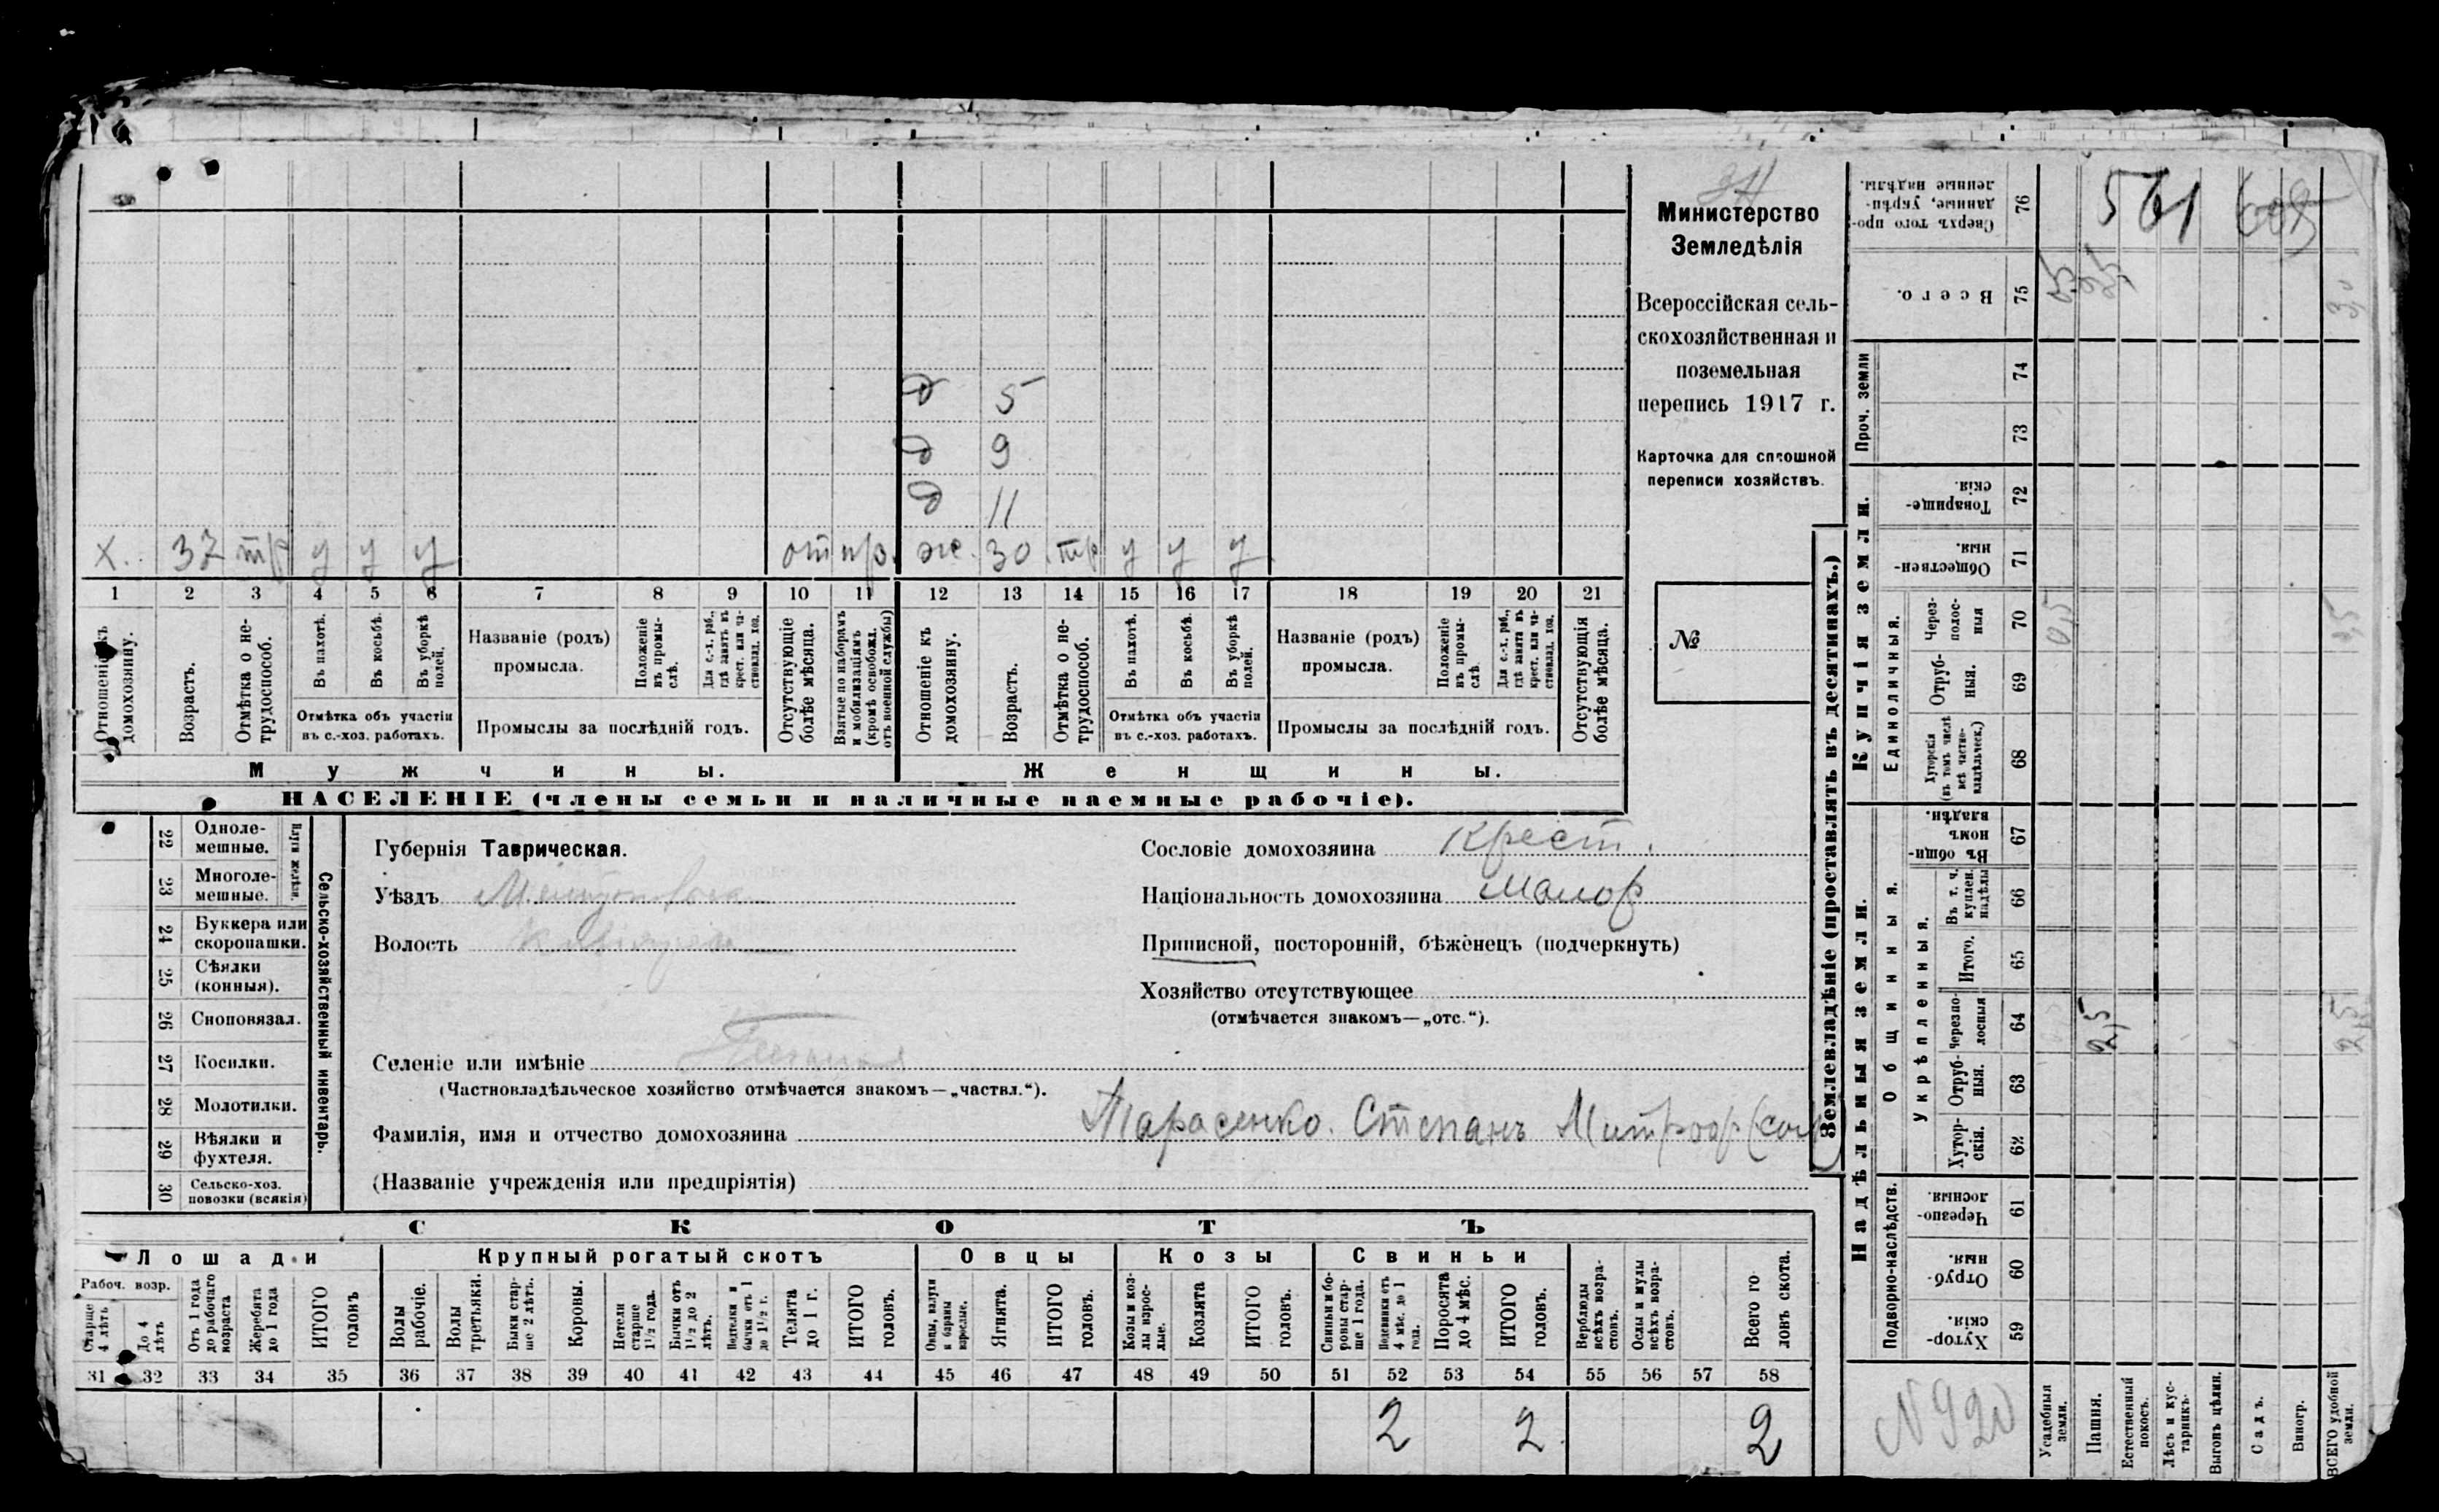 Х. 37 тр у у у отпр. ж. 30 тр у у у
д 5
д 9
д 11
1 2 3 4 5 6 7 8 9 10 11 12 13 14 15 16 17 18 19 20 21
Отношеніе къ домохозяину.
Возрастъ.
Отмѣтка о нетрудоспособ.
Въ пахотѣ.
Въ косьбѣ.
Въ уборкѣ полей.
Отмѣтка объ участіи
въ с.-хоз. работахъ.
Названіе (родъ)
промысла.
Положеніе въ промыслѣ.
Для с.-х. раб., гдѣ занятъ въ крест. или частновлад. хоз.
Промыслы за послѣдній годъ.
Отсутствующіе болѣе мѣсяца.
Взятые по наборамъ и мобилизаціямъ (кромѣ освобожд. отъ военной службы)
Отношеніе къ домохозяину.
Возрастъ.
Отмѣтка о нетрудоспособ.
Въ пахотѣ.
Въ косьбѣ.
Въ уборкѣ полей.
Отмѣтка объ участіи
въ с.-хоз. работахъ.
Названіе (родъ)
промысла.
Положеніе въ промыслѣ.
Для с.-х. раб., гдѣ занята въ крест. или частновлад. хоз.
Промыслы за послѣдній годъ.
Отсутствующія болѣе мѣсяца.
Мужчины.
Женщины.
НАСЕЛЕНІЕ (члены семьи и наличные наемные рабочіе).
Министерство
Земледѣлія
Всероссійская сель-
скохозяйственная и
поземельная
перепись 1917 г.
Карточка для сплошной
переписи хозяйствъ.
№
22 Одноле-
мешные.
23 Многоле-
мешные.
24 Буккера или
скоропашки.
25 Сѣялки
(конныя).
26 Сноповязал.
27 Косилки.
28 Молотилки.
29 Вѣялки и
фухтеля.
30 Сельско-хоз.
повозки (всякія)
Сельско-хозяйственный инвентарь.
Губернія Таврическая.
Уѣздъ
Волость
Селеніе или имѣніе
(Частновладѣльческое хозяйство отмѣчается знакомъ—„частвл.“).
Фамилія, имя и отчество домохозяина Тарасенко. Степанъ Митроф
(Названіе учрежденія или предпріятія)
Сословіе домохозяина Крест.
Національность домохозяина малор
Приписной, посторонній, бѣженецъ (подчеркнуть)
Хозяйство отсутствующее
(отмѣчается знакомъ—„отс.“).
СКОТЪ
Лошади Крупный рогатый скотъ Овцы Козы Свиньи
Рабоч. возр.
Старше 4 лѣтъ
До 4 лѣтъ
Отъ 1 года до рабочаго возраста
Жеребята до 1 года
ИТОГО головъ
Волы рабочіе.
Волы третьяки.
Быки старше 2 лѣтъ.
Коровы.
Нетели старше 1½ года.
Бычки отъ 1½ до 2 лѣтъ.
Телята до 1 г.
ИТОГО головъ.
Ягнята.
ИТОГО головъ.
Козы и козлы взрослые.
Козлята
ИТОГО головъ.
Свиньи и боровы старше 1 года.
Подсвинки отъ 4 мѣс. до 1 года.
Поросята до 4 мѣс.
ИТОГО головъ.
Верблюды всѣхъ возрастовъ.
Ослы и мулы всѣхъ возрастовъ.
Всего головъ скота.
31 32 33 34 35 36 37 38 39 40 41 42 43 44 45 46 47 48 49 50 51 52 53 54 55 56 57 58
2 2 2
Землевладѣніе (проставлять въ десятинахъ.)
Сверхъ того проданные, укрѣпленные надѣлы. 76
561
Всего. 75
Проч. земли
74
73
Купчія земли.
Товарищескія. 72
Общественныя. 71
Единоличныя.
Черезполосныя 70 0,5
Отрубныя. 69
Хуторскія (въ томъ числѣ всѣ частновладѣльческ.) 68
Надѣльныя земли.
Общинныя.
Въ общинномъ владѣн. 67
Укрѣпленныя.
Въ т. ч. куплен. надѣлы 66
Итого. 65
Черезполосныя 64 2,5 2,5
Отрубныя. 63
Хуторскія. 62
Подворно-наслѣдств.
Черезполосныя. 61
Отрубныя. 60
Хуторскія. 59
N 920
Усадебныя земли.
Пашня.
Естественный покосъ.
Лѣсъ и кустарникъ.
Выгонъ цѣлин.
Садъ.
Виногр.
ВСЕГО удобной земли.